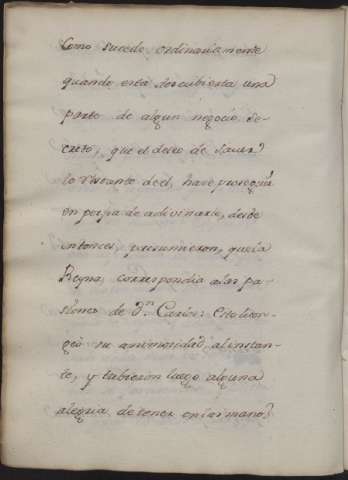 Como sucede ordinariamente
quando està descubierta una
parte de algun negocio se-
creto, que el deseo de sacar
lo restante del, hace proseguir
en porfia de adivinarle, desde
entonces, presumieron, que la
Reyna, correspondia a las pa-
siones de Dn. Carlos: Esto liton-
geò su animosidad, al instan-
te, y tubieron luego alguna
alegria de tener en las manos